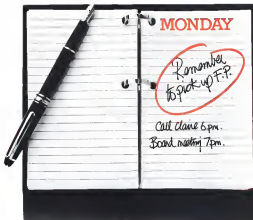 MONDAY
Remember
to pick up F.P.
Call claire 6 p.m.
Board meeting 7pm.